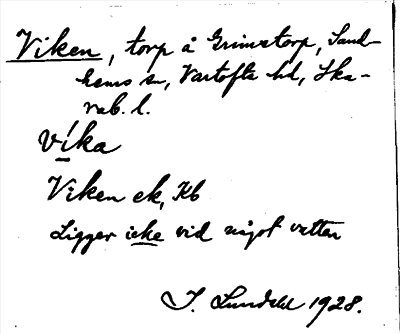 Viken, torp å Grimstorp, Sand-
hems sn, Vartofta hd, Ska-
rab. l.
víka
Viken ek, Kb
Ligger icke vid något vatten
I. Lundahl 1928.